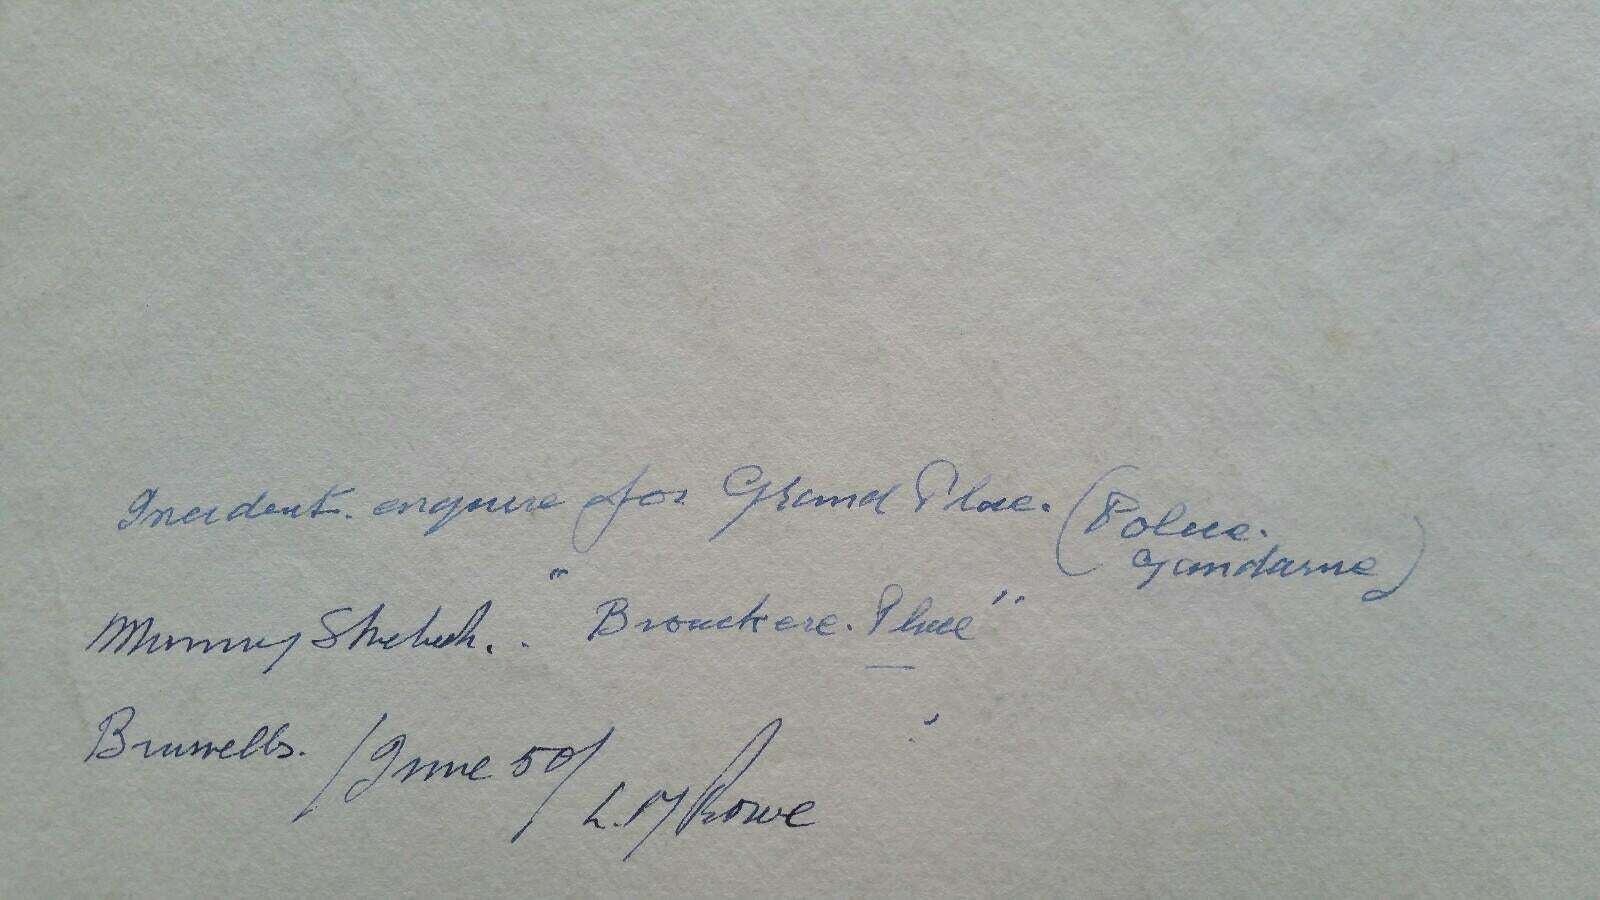 Incident. enquire for Grand Place. (Police.
Gendarme)
" Brouckere. Place"
Brussells. /June 50/
L. M Rowe